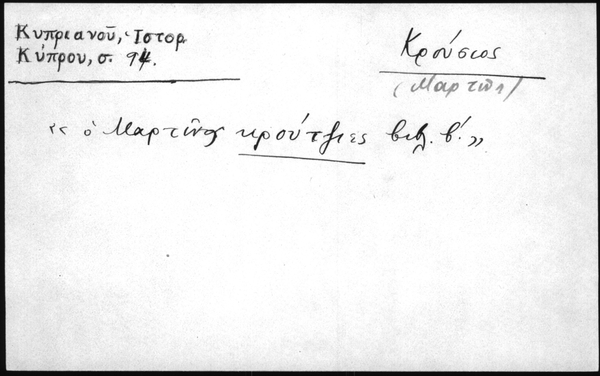 Κυπριανοῦ, Ἱστορ
Κύπρου, σ. 94.
Κρούσιος
(Μαρτῖν)
“ ὁ Μαρτῖνος κρούτζιες βιβλ. β΄. ”